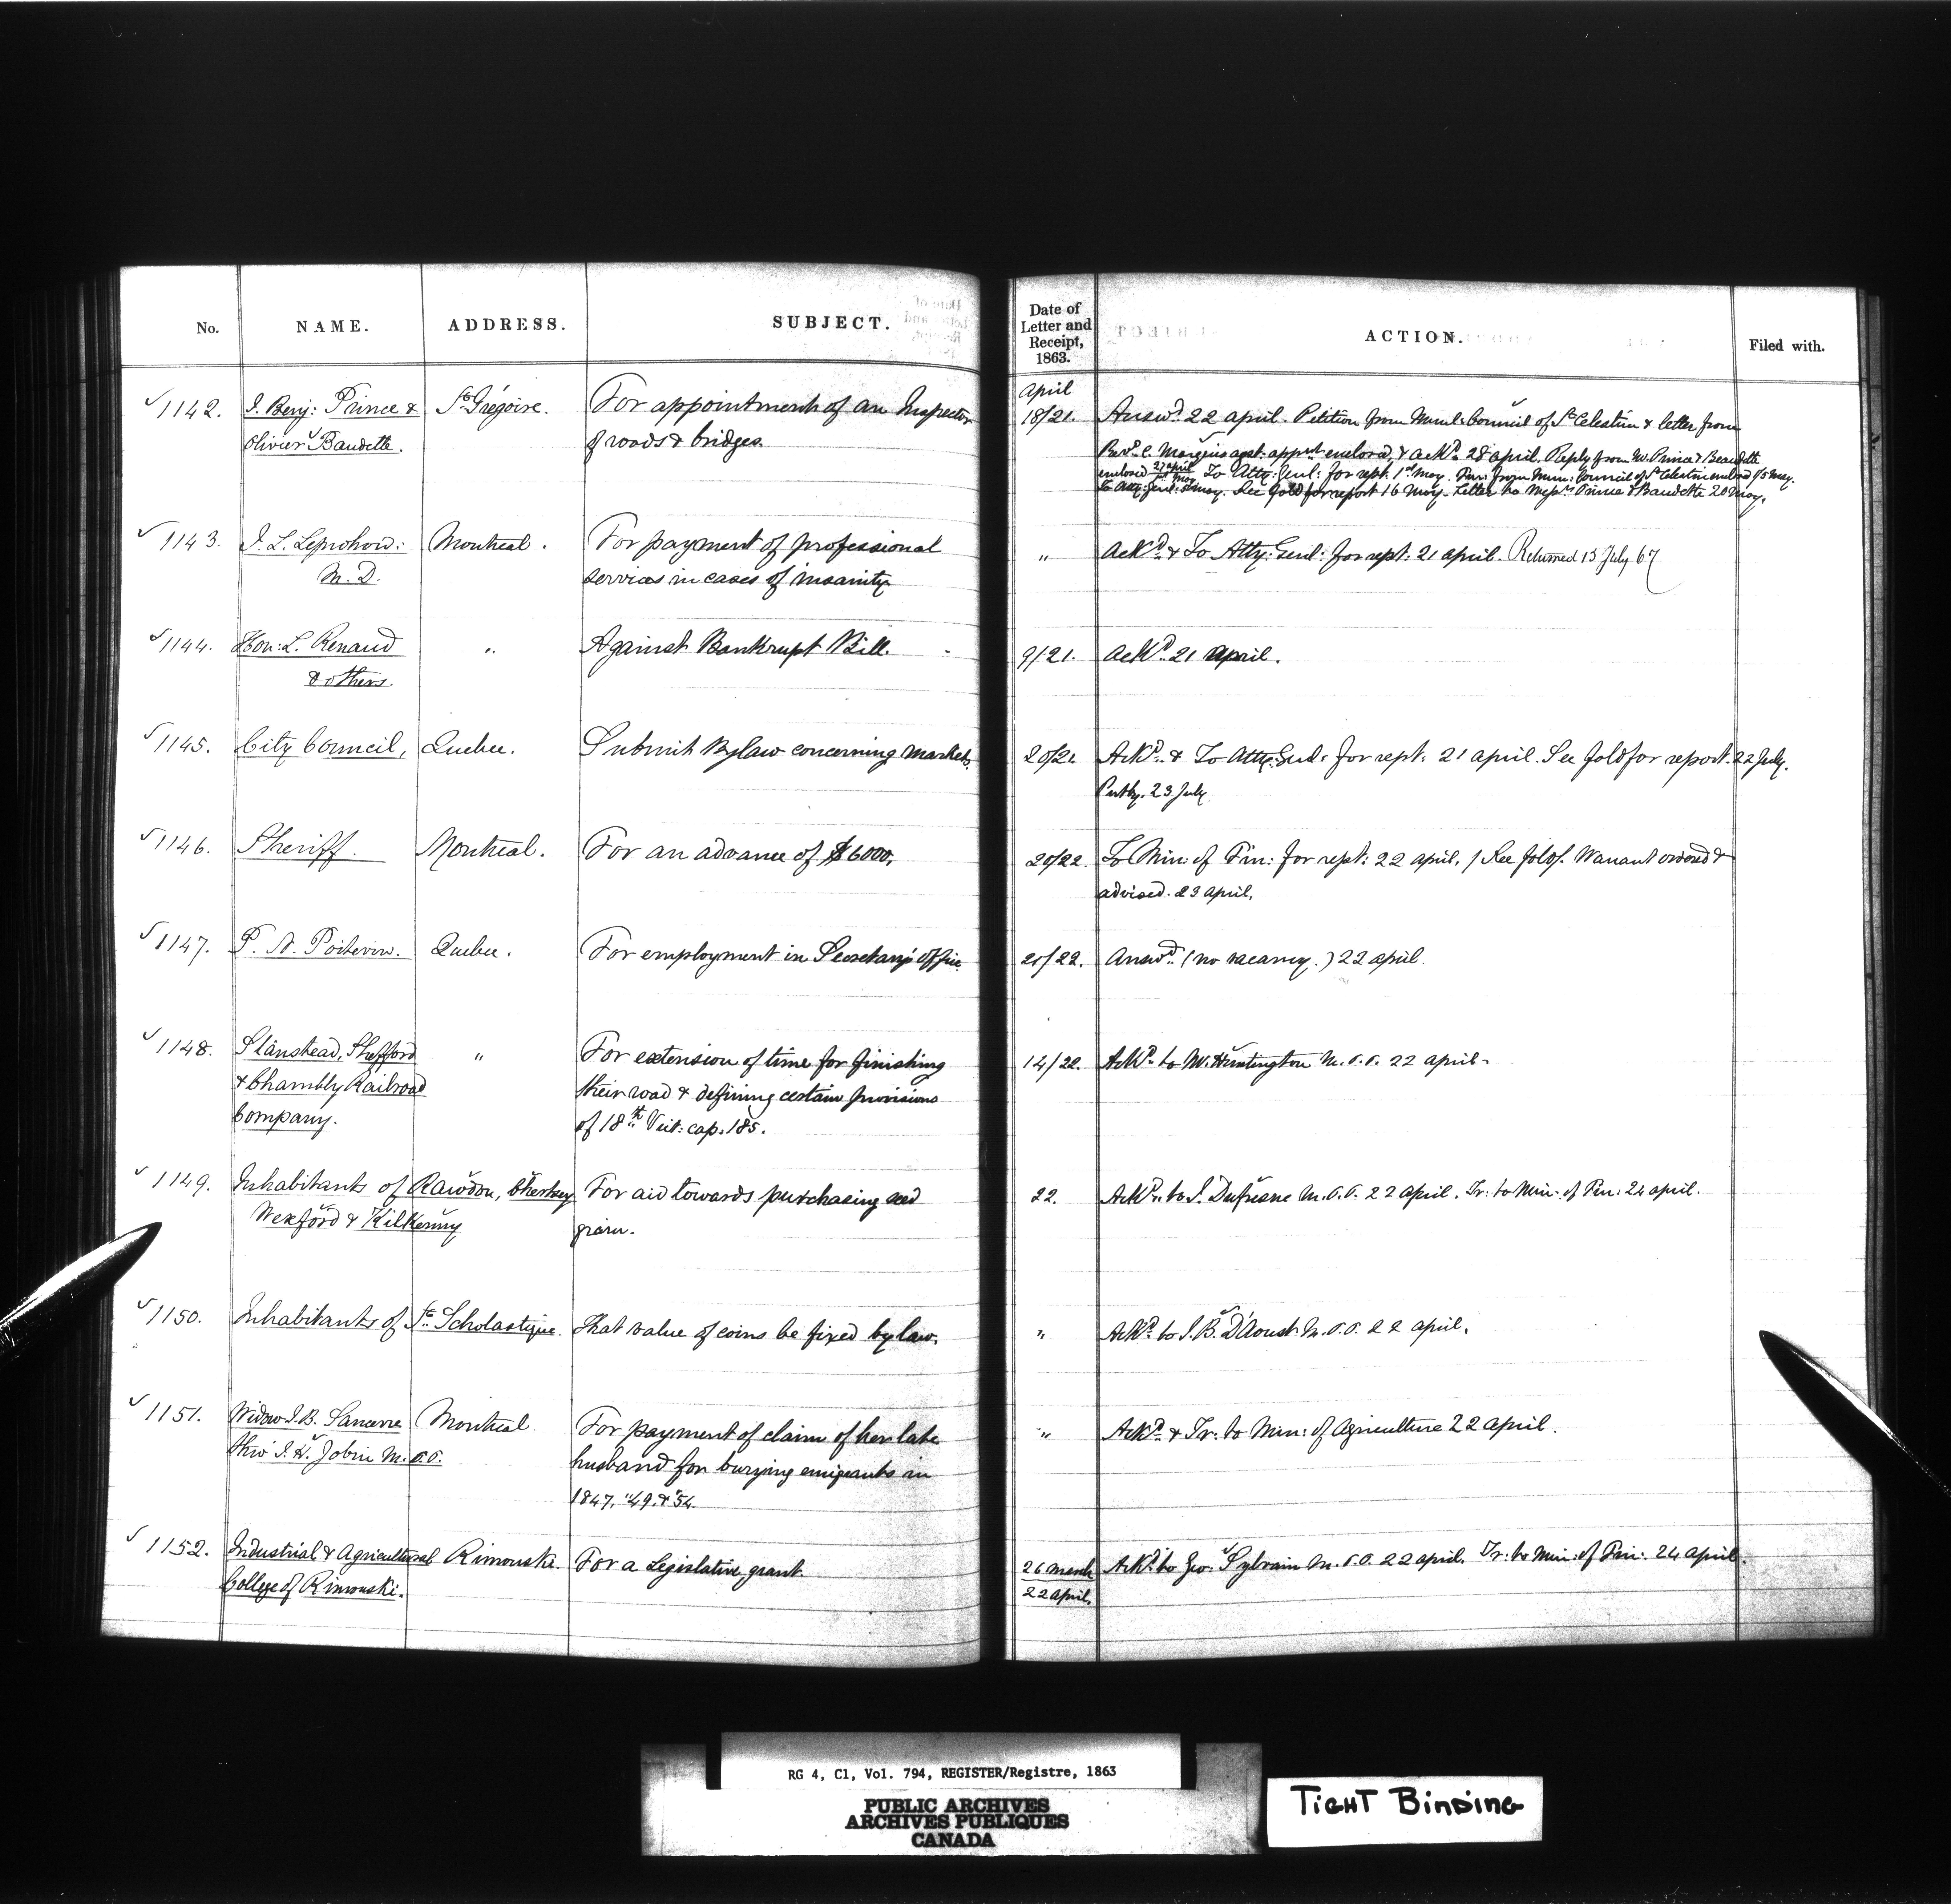 No. NAME. ADDRESS. SUBJECT. Date of Letter and Receipt, 1863. ACTION. Filed with.
April
1142. J. Benj: Prince & St Grégoire. For appointment of an Inspector 18/21. Answd. 22 April. Petition from Munl. Council of St Celestin & letter from
Olivier Baudette. of roads & bridges. Revd. C. Marquis agst: appnt enclosed, & ackd. 28 April. Reply from M. Prince & Beaudette
enclosed 27 April To Atty: Genl: for rept: 1st May. from Mun: Council of St Celestin enclosed 15 May.
To Atty: Genl: May. See fold for report 16 May. Letter to Messrs. Prince & Baudette 20 May.
1143. J. L. Leprohon: Montreal. For payment of professional " Ackd. & To Atty: Genl: for rept: 21 April. Returned 15 July 67
M.D. services in cases of insanity
1144. Hon: L. Renaud " Against Bankrupt Bill. 9/21. Ackd. 21 April.
& others.
1145. City Council, Quebec. Submit Bylaw concerning markets. 20/21. Ackd. & To Atty: Genl: for rept: 21 April. See fold for report. 22 July.
23 July.
1146. Sheriff. Montreal. For an advance of $6000. 20/22. To Min: of Fin: for rept: 22 April. / See fold/. Warrant ordered &
advised. 23 April.
1147. P. A. Poitevin. Quebec. For employment in Secretary's Office 21/22. Answd. (no vacancy.) 22 April.
1148. Stanstead, Shefford " For extension of time for finishing 14/22. Ackd. to M. Huntington M.P.P. 22 April.
& Chambly Railroad their road & defining certain provisions
Company. of 18th Vict: cap: 185.
1149. Inhabitants of Rawdon, Chertsey For aid towards purchasing seed 22. Ackd. to J. Dufresne M.P.P. 22 April. Tr: to Min: of Fin: 24 April.
Wexford & Kilkenny grain.
1150. Inhabitants of Ste. Scholastique. That value of coins be fixed by law. " Ackd. to J. B. D'Aoust M.P.P. 22 April.
1151. Widow J. B. Sancerre Montreal. For payment of claim of her late " Ackd. & Tr: to Min: of Agriculture 22 April.
thro' J. H. Jobin M.P.P. husband for burying emigrants in
1847, "49, & "54.
1152. Industrial & Agricultural Rimouski. For a Legislative grant. 26 March Ackd. to Geo: Sylvain M.P.P. 22 April. Tr: to Min: of Fin: 24 April.
College of Rimouski. 22 April.
RG 4, C1, Vol. 794, REGISTER/Registre, 1863
PUBLIC ARCHIVES
ARCHIVES PUBLIQUES
CANADA
TIGHT BINDING